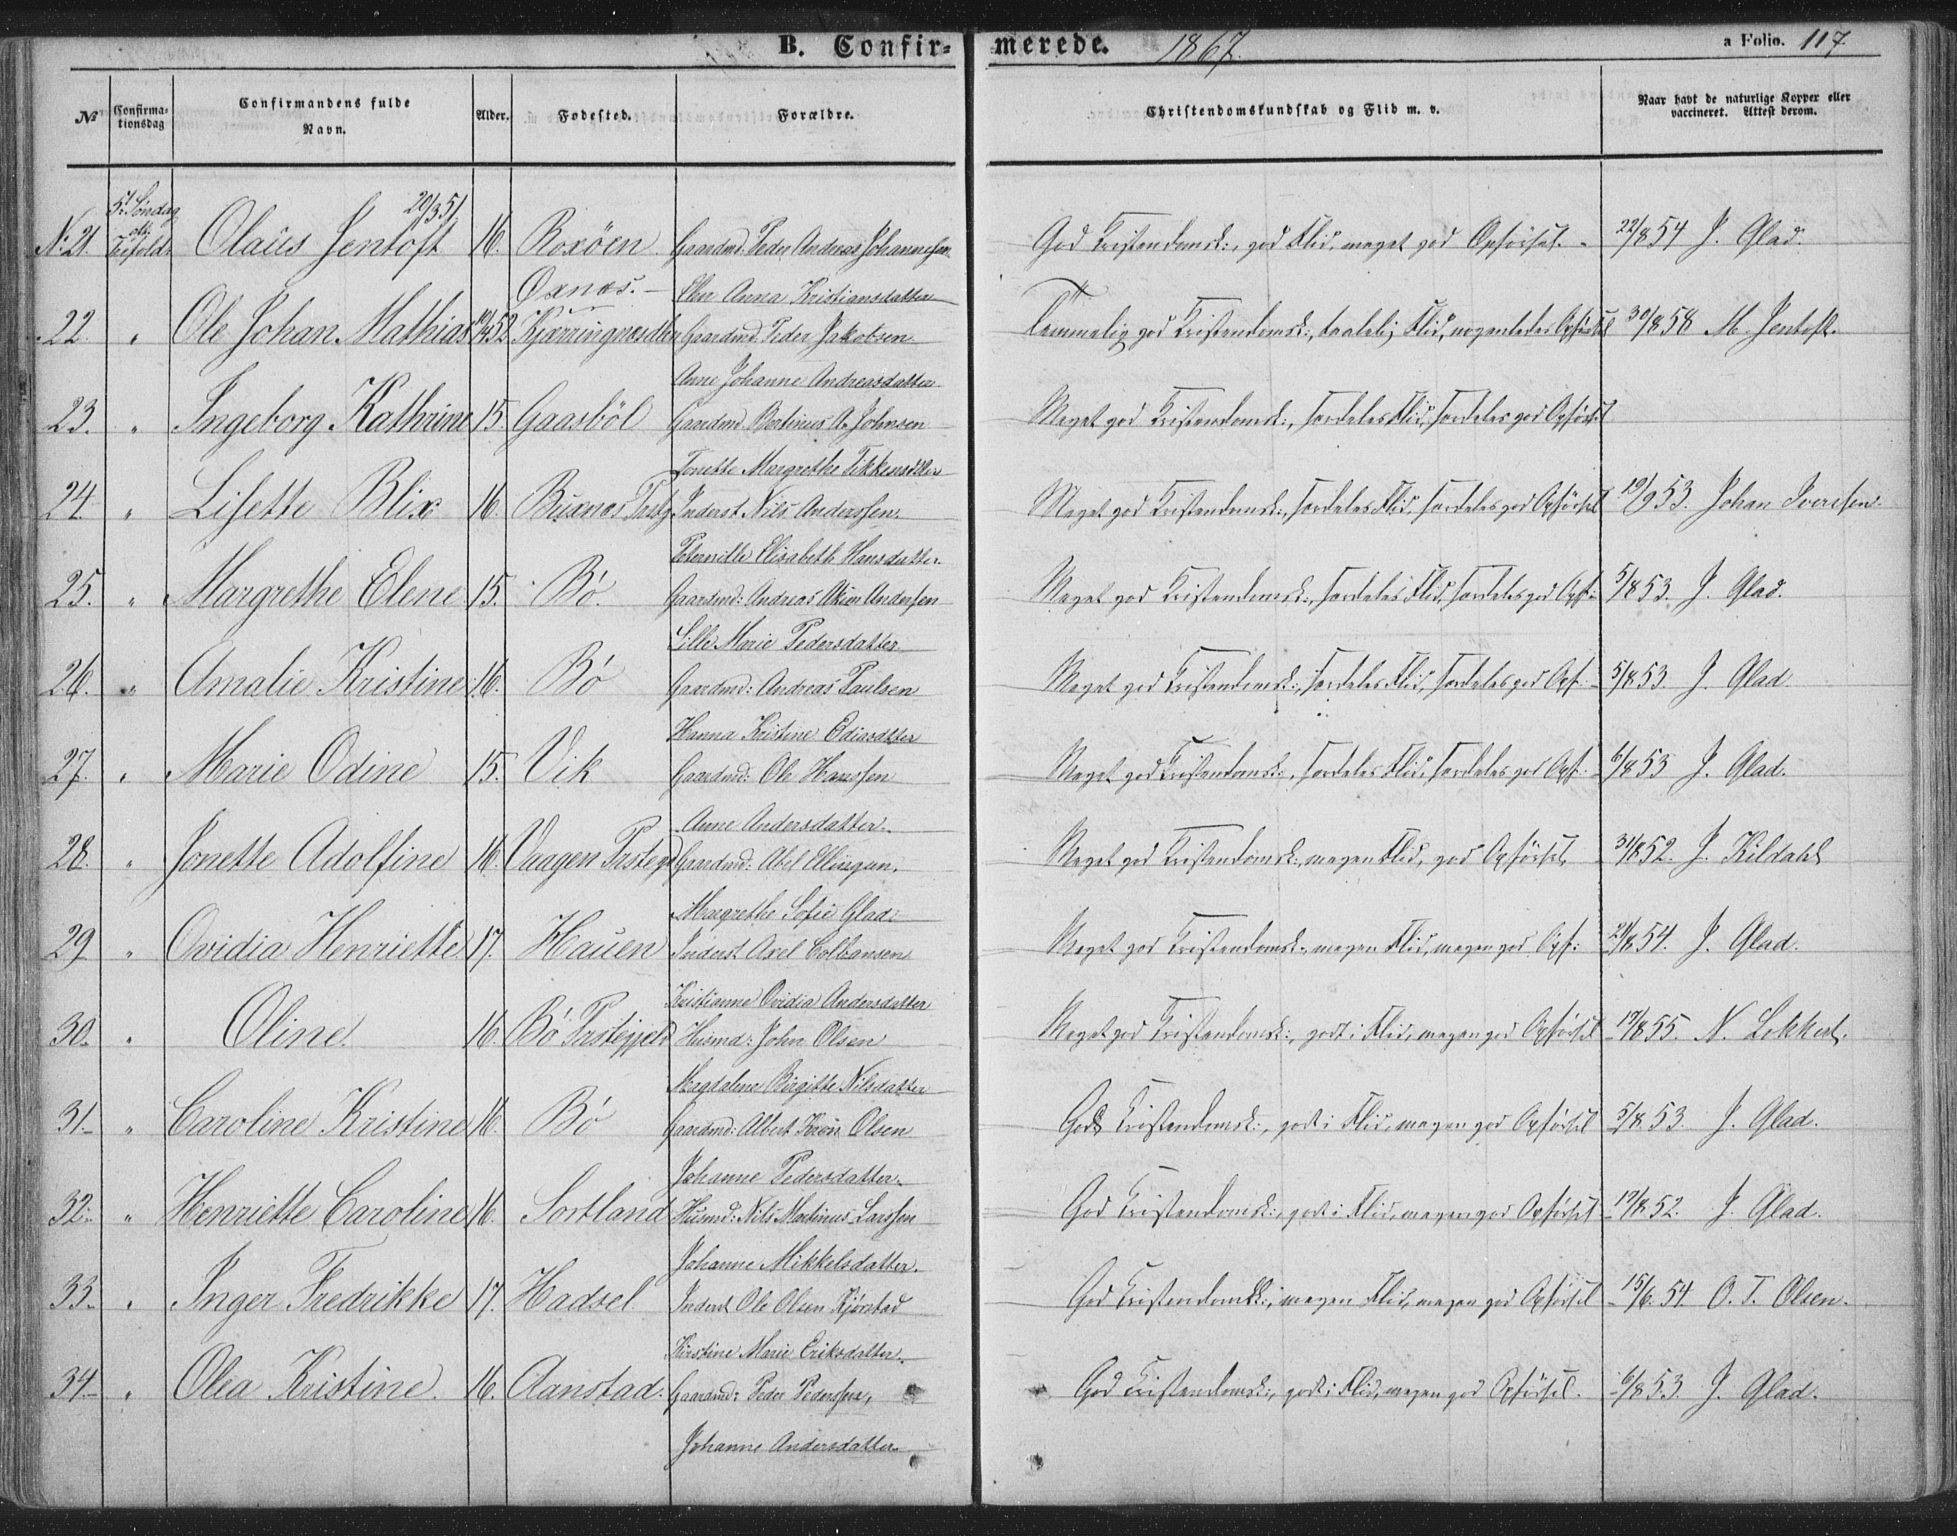 B. Confirmerede. 1867. a Folio. 117
№ Confirmationsdag Confirmandens fulde Navn. Alder. Fødested. Forældre. Christendomskundskab og Flid m. v. Naar havt de naturlige Kopper eller vaccineret. Attest derom.
5t Søndag 29/3 51
N. 21. Trefold: Olaus Jentoft 16. Roxöen Gaardmd: Peder Andreas Johannesen God Kristendomsk:, god Flid, meget god Opførsel. 22/8 54 J. Glad.
Öxnæs. Anna Kristiansdatter
22. " Ole Johan Mathias 52 Gaardmd. Peder Jakobsen Temmelig god Kristendomsk:, taalelig Flid, nogenledes Opførsel 30/8 58 M. Jentoft.
Anne Johanne Andreasdatter
23. " Ingeborg Kathrine 15 Gaasböl Gaardmd Bertinus A. Johnsen Meget god Kristendomsk:, særdeles Flid, særdeles god Opførsel
Tonette Margrethe
24. " Lisette Blix 16. Buxnæs Inderst Nils Anderssen. Meget god Kristendomsk:, særdeles Flid, særdeles god Opførsel 19/9 53. Johan Iverssen.
Peternille Elisabeth Hansdatter.
25. " Margrethe Elene 15. Bö. Gaardmd: Andreas Andersen Meget god Kristendomsk:, særdeles Flid, særdeles god Opf: 5/8 53. J. Glad.
Sille Marie Pedersdatter
26. " Amalie Kristine 16. Bö Gaardmd: Andreas Paulsen Meget god Kristendomsk:, særdeles Flid, særdeles god Opf: 5/8 53 J. Glad.
Hanna Kristine
27. " Marie Odine 15. Vik Gaardmd: Ole Hanssen Meget god Kristendomsk:, særdeles Flid, særdeles god Opf: 6/8 53 J. Glad.
Anne Andersdatter.
28. " Jonette Adolfine 16. Vaagen Gaardmd: Abel Ellingsen. Meget god Kristendomsk:, megen Flid, god Opførsel, 31/8 52. J. Kildahl
Margrethe Sofie Glad.
29. " Ovidia Henriette 17. Hauen Inderst Axel Colbansen Meget god Kristendomsk:, megen Flid, megen god Opf: 21/8 54. J. Glad.
Kristianne Ovidia Andersdatter
30. " Oline. 16. Bö Prstegjeld Husmd: John Olsen Meget god Kristendomsk:, godt i Flid, megen god Opførsel 17/8 55. N. Lokkert.
Magdalena Birgitte Nilsdatter
31. " Caroline Kristine 16. Bö Gaardmd: Albert Olsen God Kristendomsk:, godt i Flid, megen god Opførsel 5/8 53. J. Glad.
Johanne Pedersdatter.
32. " Henriette Caroline 16. Sortland Husmd: Nils Martinus Larssen God Kristendomsk:, godt i Flid, megen god Opførsel 17/8 52. J. Glad.
Johanne Mikkelsdatter.
33. " Inger Fredrikke 17. Hadsel Inderst Ole Olsen Kjørstad God Kristendomsk:, megen Flid, megen god Opførsel 15/6 54. O. T. Olsen.
Kirstine Marie Eriksdatter.
34. " Olea Kristine. 16. Aanstad. Gaardmd: Peder Pederssen, God Kristendomsk:, godt i Flid, megen god Opførsel. 6/8 53. J. Glad.
Johanne Andersdatter